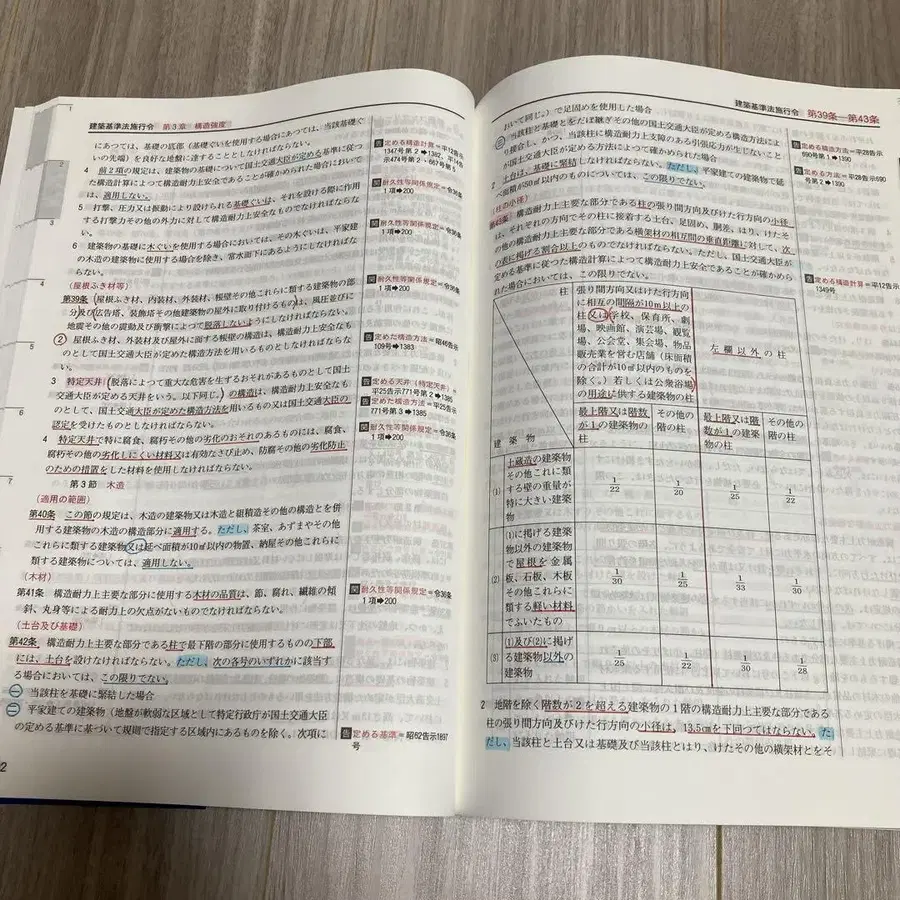 建築基準法施行令 第3章 構造強度
にあつては、基礎の底部(基礎ぐいを使用する場合にあつては、当該基礎ぐ
いの先端)を良好な地盤に達することとしなければならない。
4 前2項の規定は、建築物の基礎について国土交通大臣が定める基準に従つ
た構造計算によつて構造耐力上安全であることが確かめられた場合において
は、適用しない。
5 打撃、圧力又は振動により設けられる基礎ぐいは、それを設ける際に作用
する打撃力その他の外力に対して構造耐力上安全なものでなければならない。
6 建築物の基礎に木ぐいを使用する場合においては、その木ぐいは、平家建
の木造の建築物に使用する場合を除き、常水面下にあるようにしなければな
らない。
(屋根ふき材等)
第39条 屋根ふき材、内装材、外装材、帳壁その他これらに類する建築物の部
分及び広告塔、装飾塔その他建築物の屋外に取り付けるものは、風圧並びに
地震その他の震動及び衝撃によつて脱落しないようにしなければならない。
2 屋根ふき材、外装材及び屋外に面する帳壁の構造は、構造耐力上安全なも
のとして国土交通大臣が定めた構造方法を用いるものとしなければならな
い。
3 特定天井(脱落によつて重大な危害を生ずるおそれがあるものとして国土
交通大臣が定める天井をいう。以下同じ。)の構造は、構造耐力上安全なも
のとして、国土交通大臣が定めた構造方法を用いるもの又は国土交通大臣の
認定を受けたものとしなければならない。
4 特定天井で特に腐食、腐朽その他の劣化のおそれのあるものには、腐食、
腐朽その他の劣化しにくい材料又は有効なさび止め、防腐その他の劣化防止
のための措置をした材料を使用しなければならない。
第3節 木造
(適用の範囲)
第40条 この節の規定は、木造の建築物又は木造と組積造その他の構造とを併
用する建築物の木造の構造部分に適用する。ただし、茶室、あずまやその他
これらに類する建築物又は延べ面積が10㎡以内の物置、納屋その他これらに
類する建築物については、適用しない。
(木材)
第41条 構造耐力上主要な部分に使用する木材の品質は、節、腐れ、繊維の傾
斜、丸身等による耐力上の欠点がないものでなければならない。
(土台及び基礎)
第42条 構造耐力上主要な部分である柱で最下階の部分に使用するものの下部
には、土台を設けなければならない。ただし、次の各号のいずれかに該当す
る場合においては、この限りでない。
一 当該柱を基礎に緊結した場合
二 平家建ての建築物(地盤が軟弱な区域として特定行政庁が国土交通大臣
の定める基準に基づいて規則で指定する区域内にあるものを除く。次項に
告 定める構造計算=平12告示
1347号第2➡1382、平14告
示474号第2・667号第5
関 耐久性等関係規定=令36条
1項➡200
関 耐久性等関係規定=令36条
1項➡200
関 耐久性等関係規定=令36条
1項➡200
告 定めた構造方法=昭46告示
109号➡1383
告 定める天井(特定天井)=
平25告示771号第2➡1385
告 定めた構造方法=平25告示
771号第3➡1385
関 耐久性等関係規定=令36条
1項➡200
関 耐久性等関係規定=令36条
1項➡200
告 定める基準=昭62告示1897
号
2
1
2
3
4
5
6
7
建築基準法施行令 第39条―第43条
おいて同じ。)で足固めを使用した場合
三 当該柱と基礎とをだぼ継ぎその他の国土交通大臣が定める構造方法によ
り接合し、かつ、当該柱に構造耐力上支障のある引張応力が生じないこと
が国土交通大臣が定める方法によつて確かめられた場合
2 土台は、基礎に緊結しなければならない。ただし、平家建ての建築物で延
べ面積が50㎡以内のものについては、この限りでない。
(柱の小径)
第43条 構造耐力上主要な部分である柱の張り間方向及びけた行方向の小径
は、それぞれの方向でその柱に接着する土台、足固め、胴差、はり、けたそ
の他の構造耐力上主要な部分である横架材の相互間の垂直距離に対して、次
の表に掲げる割合以上のものでなければならない。ただし、国土交通大臣が
定める基準に従つた構造計算によつて構造耐力上安全であることが確かめら
れた場合においては、この限りでない。
柱
建築物
張り間方向又はけた行方向
に相互の間隔が10m以上の
柱又は学校、保育所、劇
場、映画館、演芸場、観覧
場、公会堂、集会場、物品
販売業を営む店舗(床面積
の合計が10㎡以内のものを
除く。)若しくは公衆浴場
の用途に供する建築物の柱
左欄以外の柱
最上階又は階数
が1の建築物の
柱
その他の
階の柱
最上階又は階
数が1の建築
物の柱
その他の
階の柱
(1) 土蔵造の建築物
その他これに類
する壁の重量が
特に大きい建築
物
1/22 1/20 1/25 1/22
(2) (1)に掲げる建築
物以外の建築物
で屋根を金属
板、石板、木板
その他これらに
類する軽い材料
でふいたもの
1/30 1/25 1/33 1/30
(3) (1)及び(2)に掲げ
る建築物以外の
建築物
1/25 1/22 1/30 1/28
2 地階を除く階数が2を超える建築物の1階の構造耐力上主要な部分である
柱の張り間方向及びけた行方向の小径は、13.5㎝を下回つてはならない。た
だし、当該柱と土台又は基礎及び当該柱とはり、けたその他の横架材とをそ
告 定める構造方法=平28告示
690号第1➡1390
告 定める方法=平28告示690
号第2➡1390
告 定める構造計算=平12告示
1349号